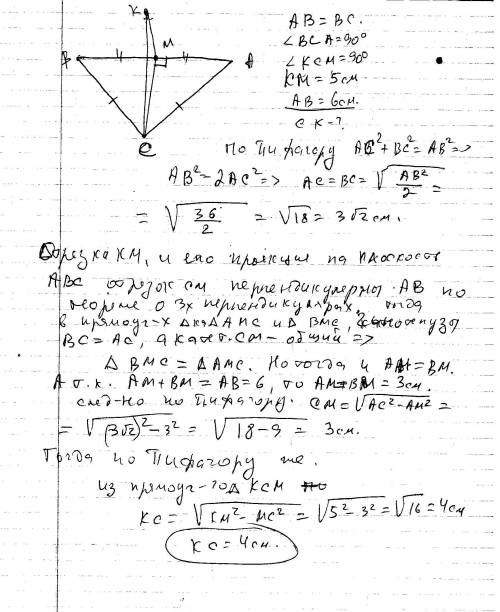 K
AB = BC.
∠BCA = 90°
M
∠KCM = 90°
B
A
KM = 5см
AB = 6см.
CK - ?
C
По Пифагору AC² + BC² = AB² =>
AB² = 2AC² => AC = BC = √(AB²/2) =
= √(36/2) = √18 = 3√2 см.
Отрезка KM, и его проекция на плоскость
ABC отрезок CM перпендикулярны AB по
теореме о 3х перпендикулярах, тогда
в прямоуг-х ΔкΔAMC и Δ BMC,
BC = AC, а катет CM - общий =>
Δ BMC = Δ AMC. Но тогда и AM = BM.
А т.к. AM + BM = AB = 6, то AM = BM = 3см.
след-но по Пифагору. CM = √(AC² - AM²) =
= √((3√2)² - 3²) = √(18 - 9) = 3см.
Тогда по Пифагору же.
из прямоуг-го Δ KCM
KC = √(KM² - MC²) = √(5² - 3²) = √16 = 4см
KC = 4см.